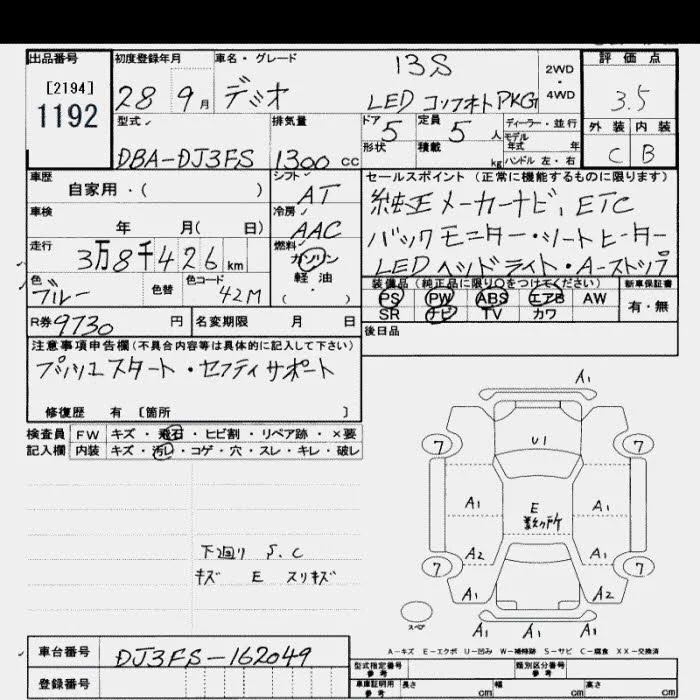 出品番号 初度登録年月 車名・グレード 13S 2WD・4WD 評価点
[2194]
1192 28 9月 デミオ LED コンフォトPKG 3.5
型式 排気量 ドア 5 定員 5人 ディーラー・並行 外装 内装
DBA-DJ3FS 1300cc 形状 積載 kg モデル年式 年 ハンドル 左・右 C B
車歴 自家用・( ) シフト AT セールスポイント (正常に機能するものに限ります)
車検 年 月( 日) 冷房 AAC 純正メーカーナビ、ETC
走行 3万8千426km 燃料 ガソリン バックモニター・シートヒーター
色 ブルー 色替 色コード 42M 軽油 ( ・ ) LEDヘッドライト・A-ストップ
装備品 (純正品に限り○をつけてください) 新車保証書
PS PW ABS エアB AW 有・無
SR ナビ TV カワ
R券 9730円 名変期限 月 日 後日品
注意事項申告欄(不具合内容等は具体的に記入して下さい)
プッシュスタート・セフティサポート
修復歴 有 [箇所 ]
検査員 FW キズ・飛石・ヒビ割・リペア跡・×要
記入欄 内装 キズ・汚レ・コゲ・穴・スレ・キレ・破レ
A1
7 U1 7
A1 E A1
数ヶ所
A2 A1
7 7
A1 A2
A1 A1 A1
スペア
下廻り S.C
キズ E スリキズ
A-キズ E-エクボ U-凹み W-補修跡 S-サビ C-腐食 XX-交換済
車台番号 DJ3FS-162049
型式指定番号 参考 類別区分番号 参考
登録番号 車庫証明用 参考 長さ cm 幅 cm 高さ cm